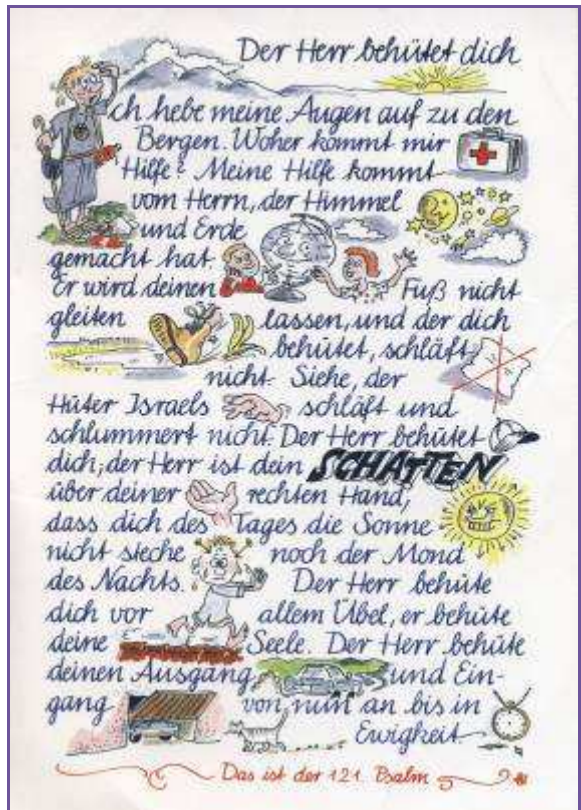 Der Herr behütet dich
Ich hebe meine Augen auf zu den
Bergen. Woher kommt mir
Hilfe? Meine Hilfe kommt
vom Herrn, der Himmel
und Erde
gemacht hat.
Er wird deinen Fuß nicht
gleiten lassen, und der dich
behütet, schläft
nicht. Siehe, der
Hüter Israels schläft und
schlummert nicht. Der Herr behütet
dich; der Herr ist dein SCHATTEN
über deiner rechten Hand,
dass dich des Tages die Sonne
nicht steche noch der Mond
des Nachts. Der Herr behüte
dich vor allem Übel, er behüte
deine Seele. Der Herr behüte
deinen Ausgang und Ein-
gang von nun an bis in
Ewigkeit.
Das ist der 121. Psalm